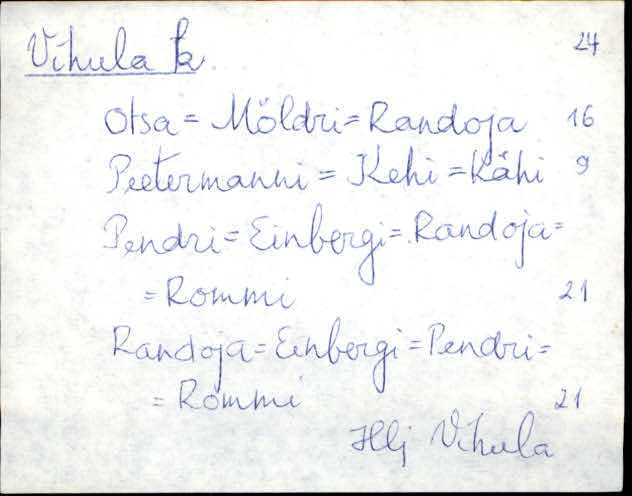 Vihula k. 24
Otsa = Möldri = Randoja 16
Peetermanni = Kehi = Kähi 9
Pendri = Einbergi = Randoja =
= Rommi 21
Randoja = Einbergi = Pendri =
= Rommi 21
Hlj Vihula